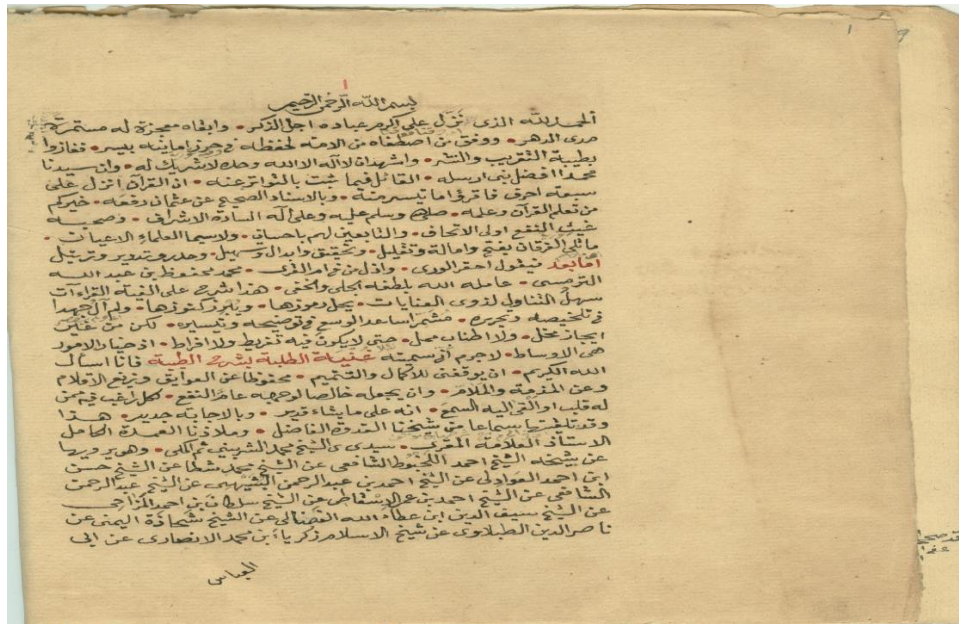 ١
بسم الله الرحمن الرحيم
الحمد لله الذى نزل على اكرم عباده اجل الذكر • وابقاه معجزة له مستمرة
مدى الدهر • ووفق من اصطفاه من الامة لحفظه فى حرز امانيه بيسر • ففازوا
بطيبة التقريب والنشر • واشهد ان لا اله الا الله وحده لا شريك له • وان سيدنا
محمدا افضل نبى ارسله • القائل فيما ثبت بالتواتر عنه • ان القرآن انزل على
سبعة احرف فاقرؤا ما تيسر منه • وبالاسناد الصحيح عن عثمان رفعه • خيركم
من تعلم القرآن وعلمه • صلى وسلم عليه وعلى آله السادة الاشراف • وصحبه
غيث النفع اولى الاتحاف • والتابعين لهم باحسان • ولاسيما العلماء الاعيان •
ما تلى الفرقان بفتح وامالة وتقليل • وتحقيق وابدال وتسهيل • وحدر وتدوير وترتيل
اما بعد فيقول احقر الورى • واذل من قرأ • محمد محفوظ بن عبد الله
الترمسى • عامله الله بلطفه الجلى والخفى • هذا شرح على الفية القراءآت
سهل التناول لذوى العنايات • يحل رموزها • ويبرز كنوزها • ولم آل جهدا
فى تلخيصه وتحريره • مشمرا ساعد الوسع فى توضيحه وتيسيره • لكن من غير
ايجاز مخل • ولا اطناب ممل • حتى لا يكون فيه تفريط ولا افراط • اذ خيار الامور
هى الاوساط • لاجرم أن سميته غنية الطلبة بشرح الطيبة فانا اسأل
الله الكريم • ان يوفقنى للاكمال والتتميم • محفوظا عن العوايق وزيغ الاقلام
وعن المذمة والملام • وان يجعله خالصا لوجهه عام النفع • لكل راغب فيه ممن
له قلب او القى اليه السمع • انه على ما يشاء قدير • وبالاجابة جدير • هذا
وقد تلقيتها سماعا من شيخنا القدوة الفاضل • وملاذنا العمدة الكامل
الاستاذ العلامة المقرى • سيدى الشيخ محمد الشربينى ثم المكى • وهو يرويها
عن شيخه الشيخ احمد اللخبوط الشافعى عن الشيخ محمد شطا عن الشيخ حسن
ابن احمد العوادلى عن الشيخ احمد بن عبد الرحمن البشيهى عن الشيخ عبد الرحمن
الشافعى عن الشيخ احمد بن عمر الاسقاطى عن الشيخ سلطان بن احمد المزاحى
عن الشيخ سيف الدين ابن عطاء الله الفضالى عن الشيخ شحاذة اليمنى عن
ناصر الدين الطبلاوى عن شيخ الاسلام زكرياء بن محمد الانصارى عن ابى
العباس